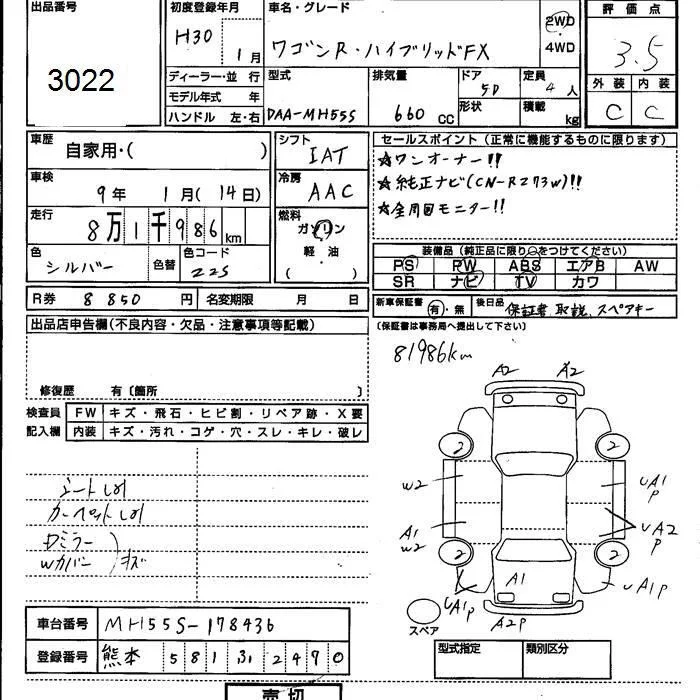 出品番号
3022
初度登録年月
H30 1月
車名・グレード
ワゴンR・ハイブリッドFX
2WD
4WD
評価点
3.5
外装 内装
C C
ディーラー・並行
モデル年式 年
ハンドル 左・右
型式
DAA-MH55S
排気量
660 cc
ドア
5D
形状
定員
4人
積載
kg
車歴
自家用・( )
車検
9年 1月(14日)
走行
8万1千986km
色
シルバー
色替
色コード
Z2S
シフト
IAT
冷房
AAC
燃料
ガソリン
軽油
( )
セールスポイント(正常に機能するものに限ります)
★ワンオーナー!!
★純正ナビ(CN-RZ73W)!!
★全周回モニター!!
装備品(純正品に限り○をつけてください)
PS PW ABS エアB AW
SR ナビ TV カワ
R券 8850円 名変期限 月 日
新車保証書 有・無 後日品 保証書、取説、スペアキー
(保証書は事務局へ提出して下さい)
出品店申告欄(不良内容・欠品・注意事項等記載)
修復歴 有〔箇所 〕
検査員 FW キズ・飛石・ヒビ割・リペア跡・X要
記入欄 内装 キズ・汚れ・コゲ・穴・スレ・キレ・破レ
81986km
A2 A2
2 2
W2
UA1
P
A1
W2
UA2
P
2 2
UA1
P
A1
UA1P
A2P
スペア
シートしみ
カーペットしみ
Dミラー
Wカバー
キズ
車台番号 MH55S-178436
登録番号 熊本 581 ふ 2490
型式指定 類別区分
売切